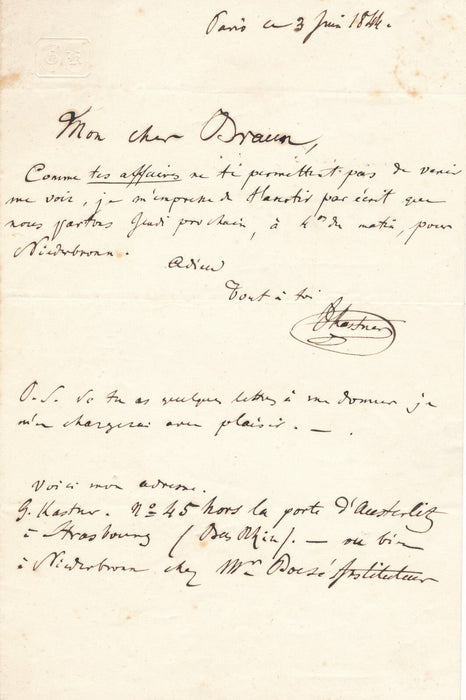 Paris ce 3 Juin 1844.
Mon cher Braun,
Comme tes affaires ne te permettent pas de venir
me voir, je m'empresse de t'avertir par écrit que
nous partons Jeudi prochain, à 4 h du matin, pour
Niederbronn.
Adieu
Tout à toi
GKastner
P.S. Si tu as quelques lettres à me donner je
m'en chargerai avec plaisir. —.
Voici mon adresse.
G. Kastner. No 45 hors la porte d'Austerlitz
à Strasbourg (Bas Rhin). — ou bien
à Niederbronn chez Mr Instituteur